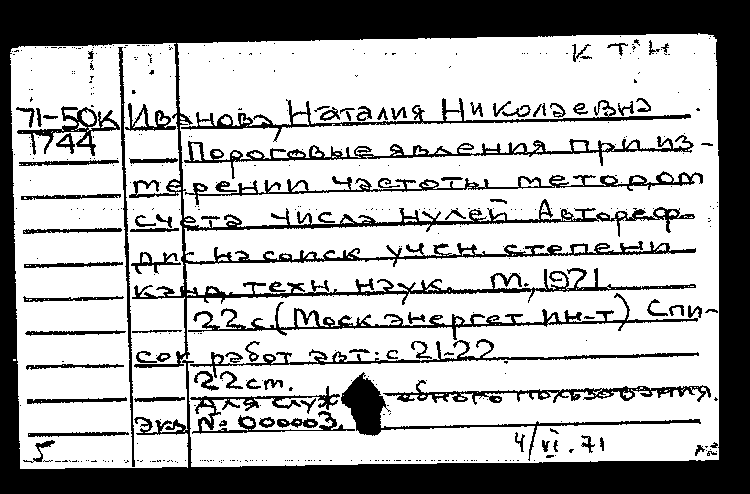 К Т Н
71-50К Иванова, Наталия Николаевна.
1744 Пороговые явления при из-
мерении частоты методом
счета числа нулей Автореф.
дис на соиск. учен. степени
канд. техн. наук. М., 1971.
22 с. (Моск. энергет ин-т) Спи-
сок работ авт: с 21-22.
22 см.
Для служебного пользования.
Экз №: 000003.
5 4/VI.71